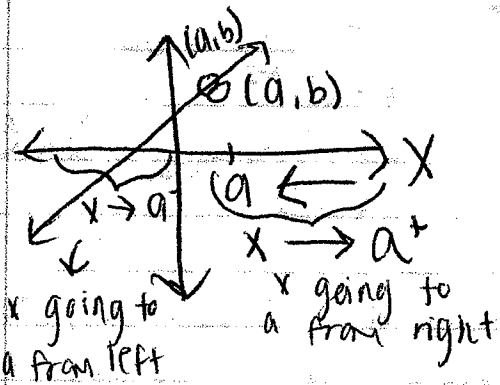 (a,b)
(a,b)
X
a
x → a⁻
x → a⁺
x going to
a from left
x going to
a from right